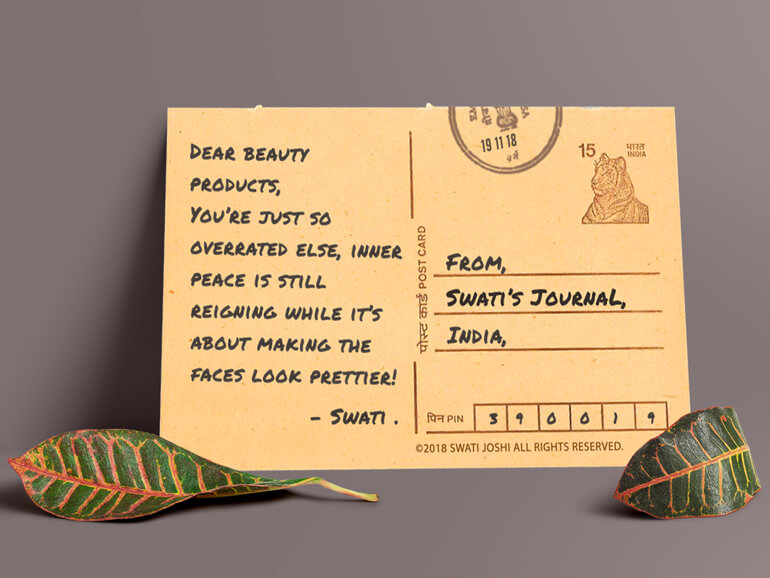 DEAR BEAUTY
PRODUCTS,
YOU'RE JUST SO
OVERRATED ELSE, INNER
PEACE IS STILL
REIGNING WHILE IT'S
ABOUT MAKING THE
FACES LOOK PRETTIER!
- SWATI .
19 11 18
15 भारत
INDIA
पोस्ट कार्ड POST CARD
FROM,
SWATI'S JOURNAL,
INDIA,
पिन PIN 3 9 0 0 1 9
©2018 SWATI JOSHI ALL RIGHTS RESERVED.